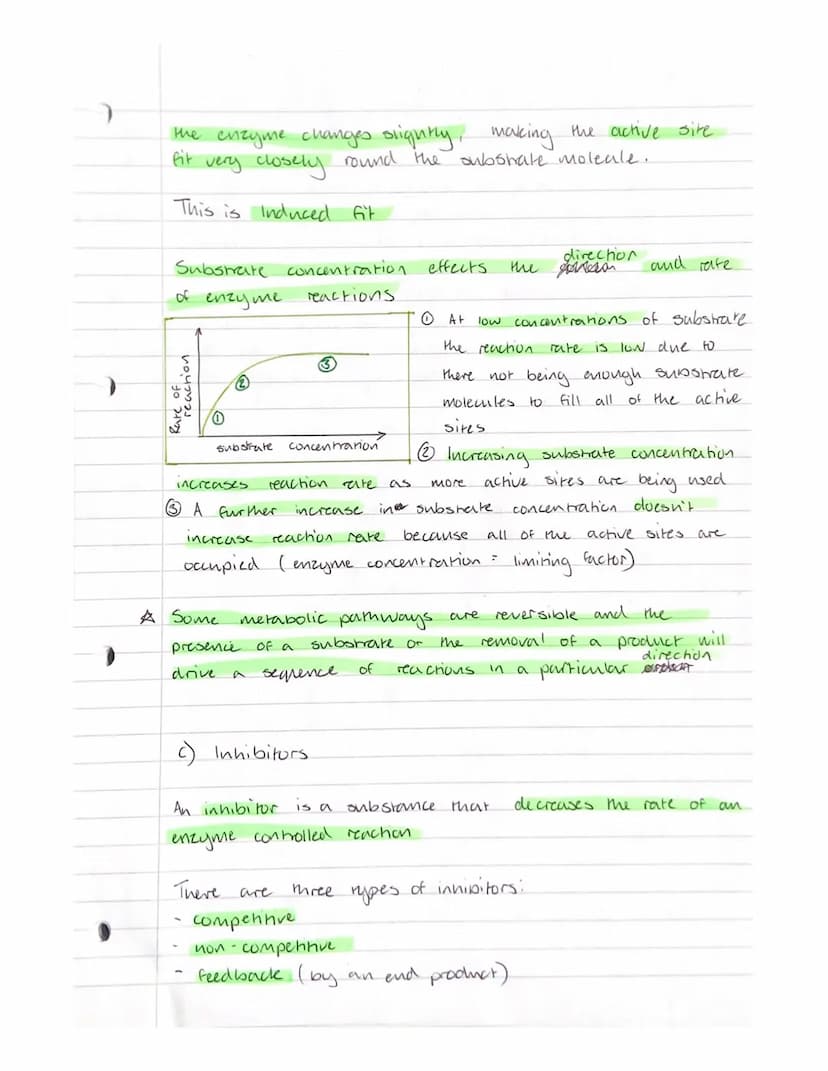 the enzyme changes slightly, making the active site
fit very closely round the substrate molecule.
This is Induced fit
Substrate concentration effects the direction and rate
of enzyme reactions
Rate of reaction
① ② ③
substrate concentration
① At low concentrations of substrate
the reaction rate is low due to
there not being enough substrate
molecules to fill all of the active
sites
② Increasing substrate concentration
increases reaction rate as more active sites are being used
③ A further increase in substrate concentration doesn't
increase reaction rate because all of the active sites are
occupied (enzyme concentration = limiting factor)
☆ Some metabolic pathways are reversible and the
presence of a substrate or the removal of a product will
drive a sequence of reactions in a particular direction
c) Inhibitors
An inhibitor is a substance that decreases the rate of an
enzyme controlled reaction
There are three types of inhibitors:
- competitive
- non-competitive
- feedback (by an end product)